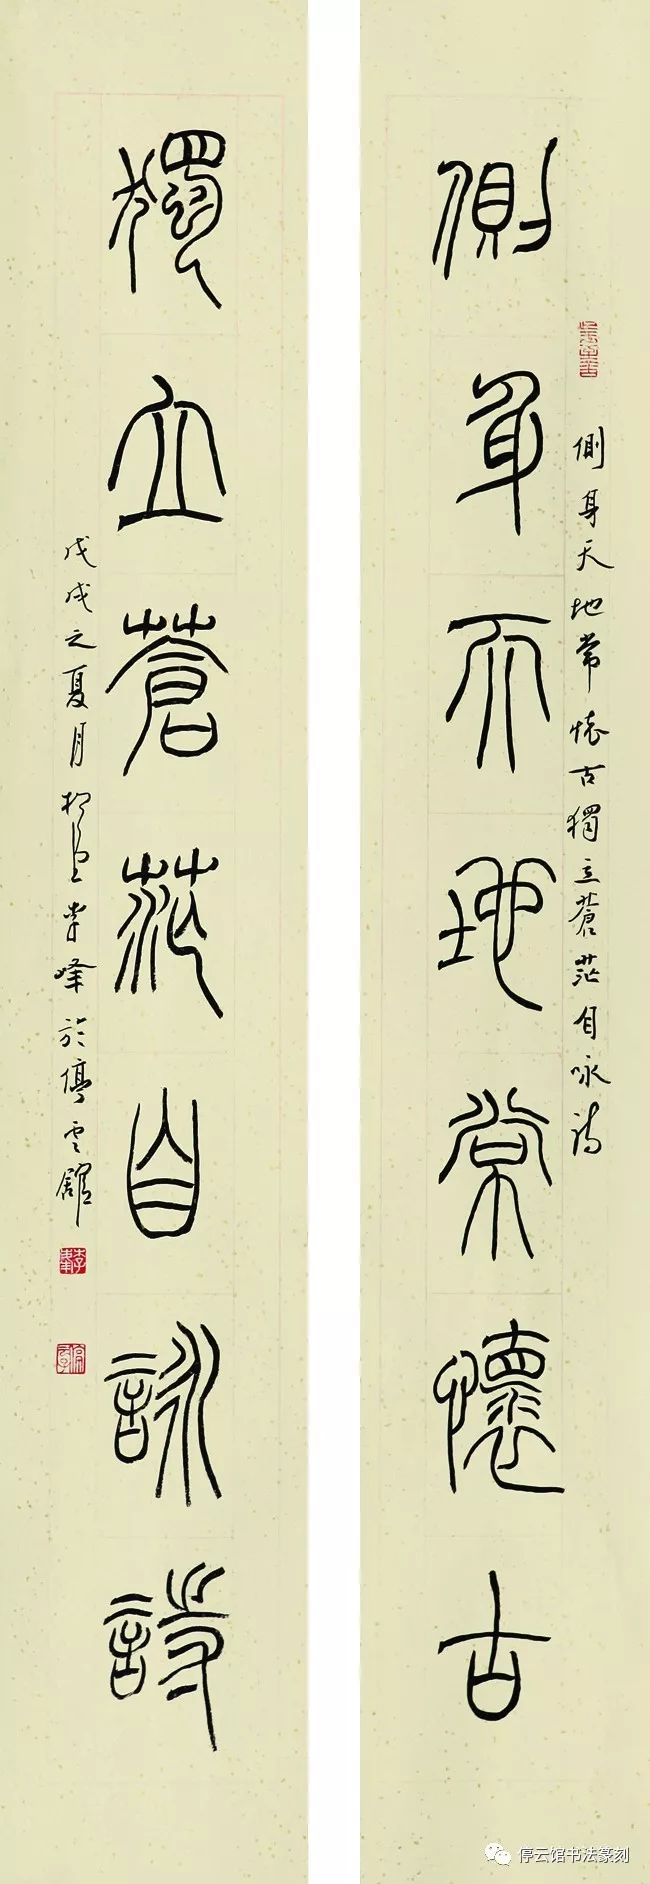 側身天地常懷古
側身天地常懷古獨立蒼茫自咏詩
獨立蒼茫自詠詩
戊戌之夏月李峰於停雲館
李峰
停云馆书法篆刻